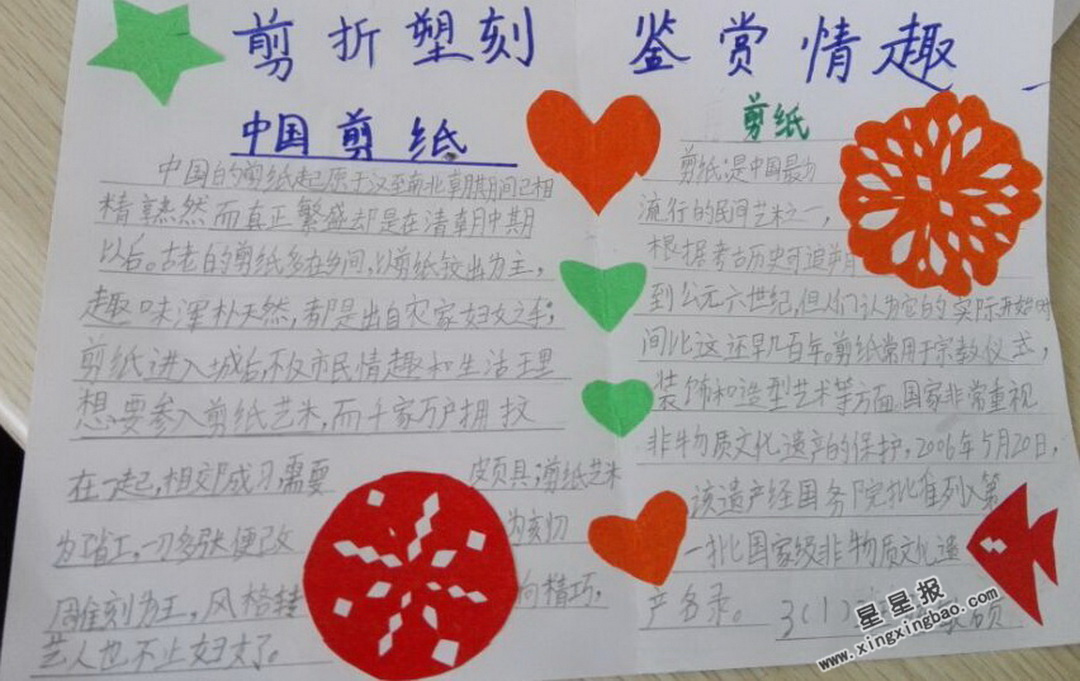 剪折塑刻 鉴赏情趣
中国剪纸
中国的剪纸起原于汉至南北朝期间已相
精熟然而真正繁盛却是在清朝中期
以后。古老的剪纸多在乡间,以剪纸铰出为主,
趣味浑朴天然,都是出自农家妇女之手;
剪纸进入城后,不仅市民情趣和生活理
想要参入剪纸艺术,而千家万户拥
在一起,相交成习,需要
具;剪纸艺术
为省工,一刀多张便改
为刻切
雕刻为主,风格转
向精巧,
艺人也不止妇女了。
剪纸
剪纸是中国最为
流行的民间艺术之一,
根据考古历史可追
到公元六世纪,但人们认为它的实际开始时
间比这还早几百年。剪纸常用于宗教仪式,
装饰和造型艺术等方面.国家非常重视
非物质文化遗产的保护,2006年5月20日,
该遗产经国务院批准列入第
一批国家级非物质文化遗
产名录。
3(1)
星星报
www.xingxingbao.com